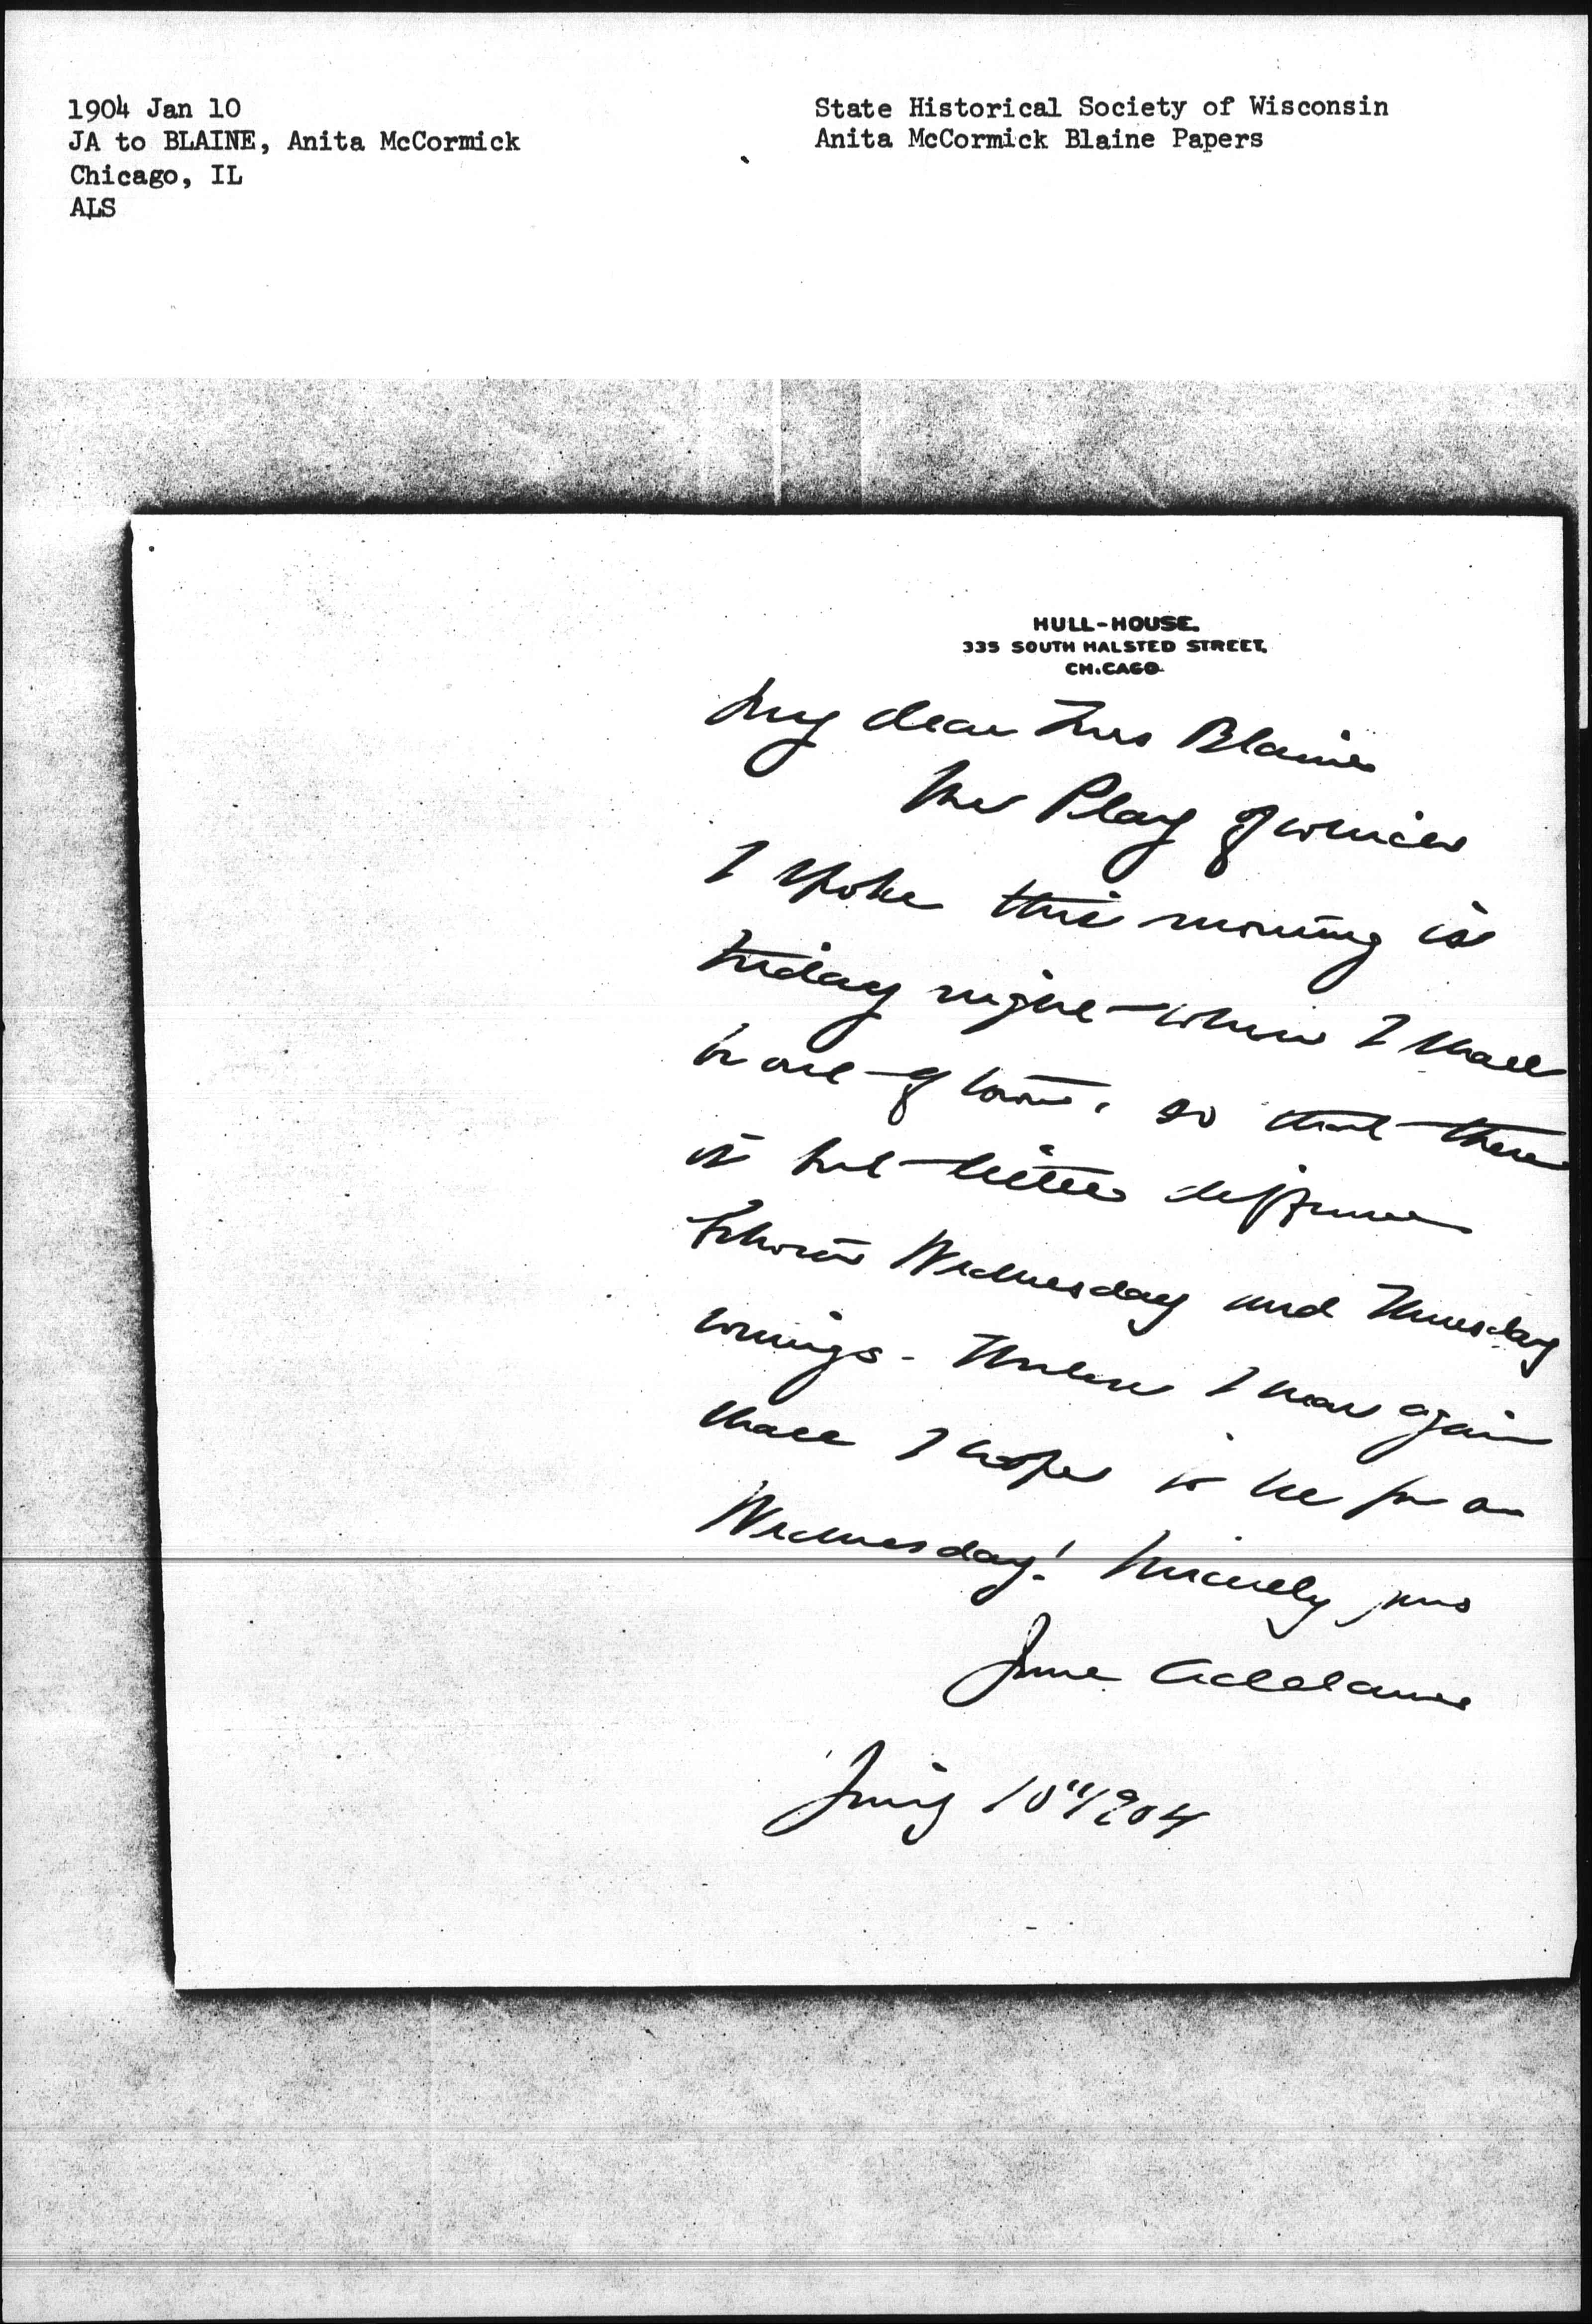 1904 Jan 10
JA to BLAINE, Anita McCormick
Chicago, IL
ALS
State Historical Society of Wisconsin
Anita McCormick Blaine Papers
HULL-HOUSE.
335 SOUTH HALSTED STREET,
CHICAGO
My dear Mrs Blaine
The Play of which
I spoke this morning is
Friday night - when I shall
be out of town. so that there
is but little difference
between Wednesday and Thursday
evenings. Unless I hear again
shall I hope to see you on
Wednesday! Sincerely yours
Jane Addams
10" 1904